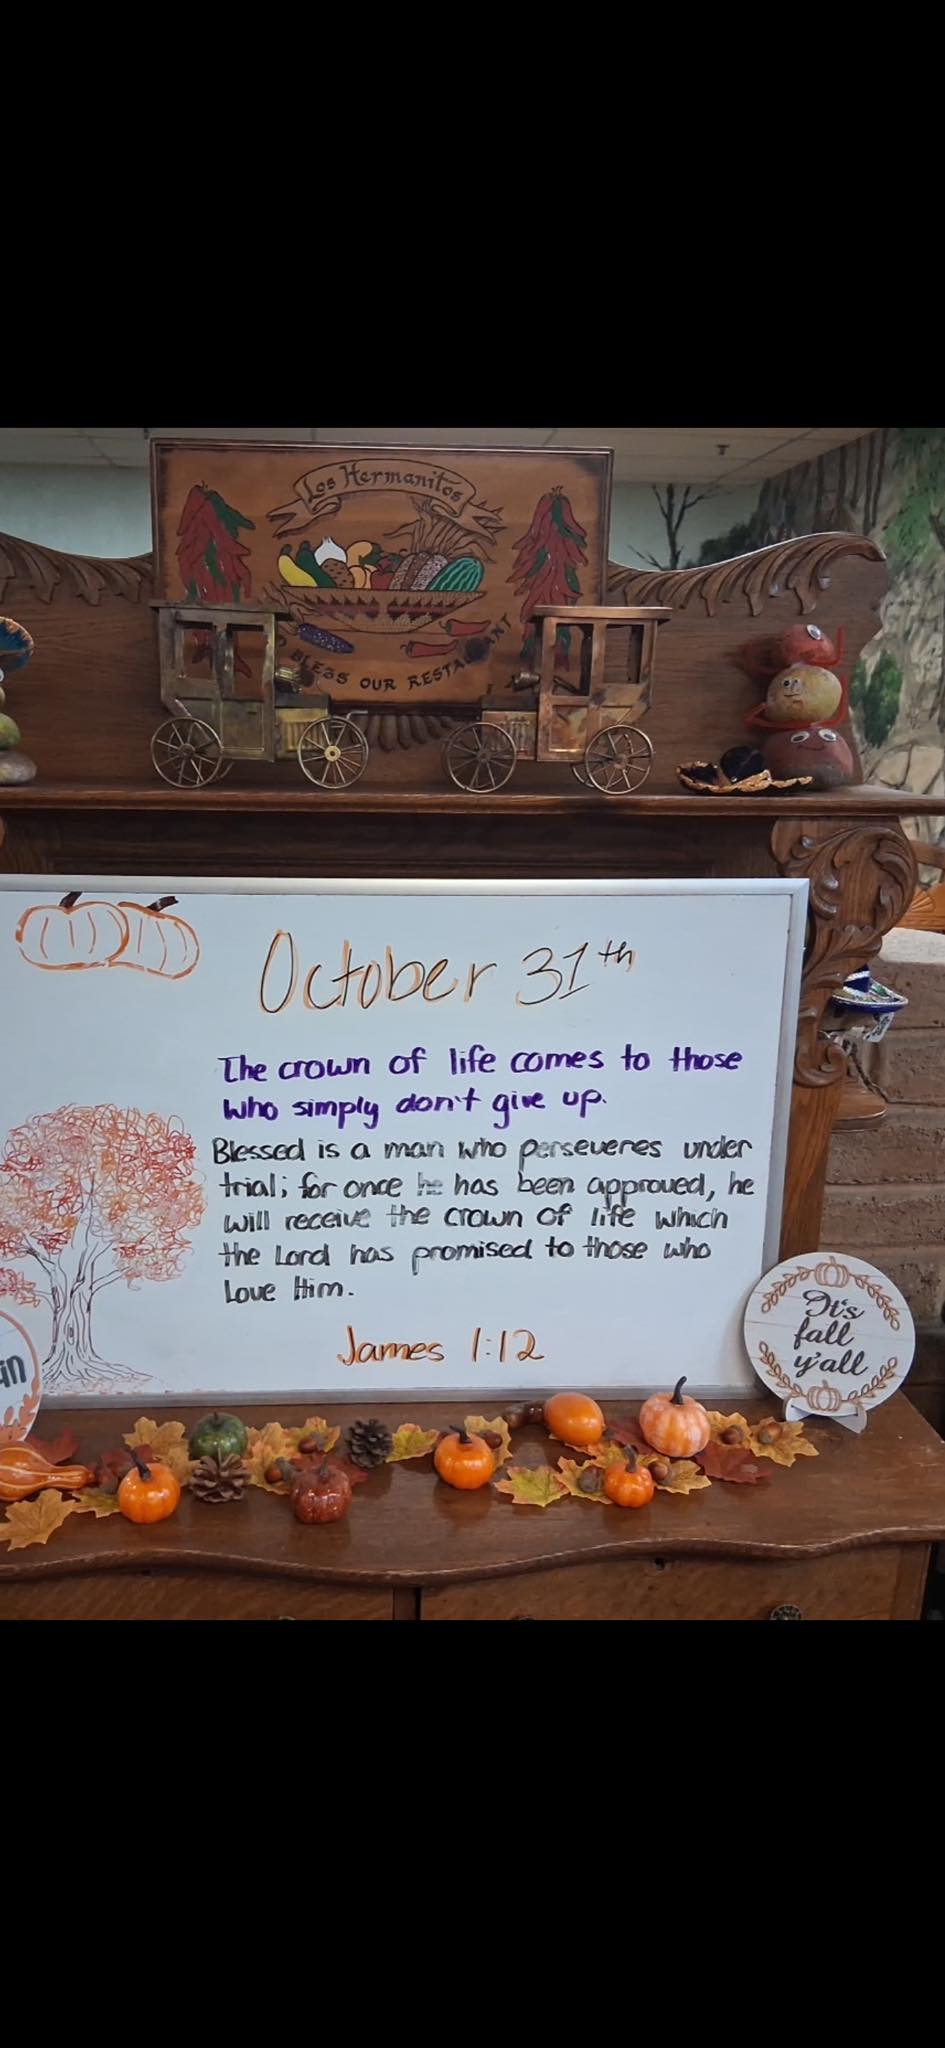 Los Hermanitos
BLESS OUR RESTAURANT
October 31th
The crown of life comes to those
who simply don't give up.
Blessed is a man who perseveres under
trial; for once he has been approved, he
will receive the crown of life which
the Lord has promised to those who
Love Him.
James 1:12
It's
fall
y'all